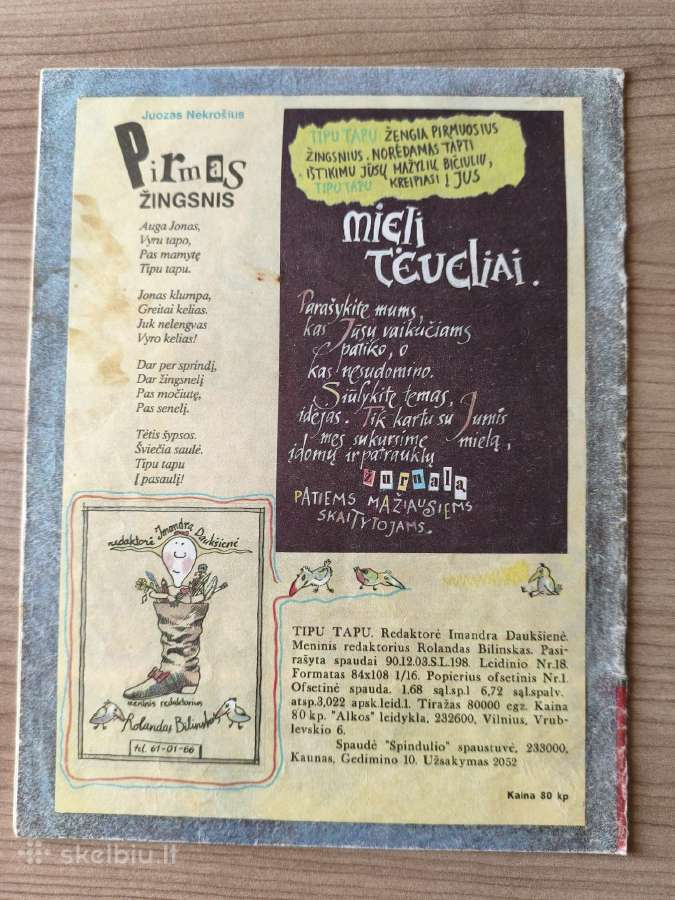 Juozas Nekrošius
Pirmas
ŽINGSNIS
Auga Jonas,
Vyru tapo,
Pas mamytę
Tipu tapu.
Jonas klumpa,
Greitai kelias.
Juk nelengvas
Vyro kelias!
Dar per sprindį,
Dar žingsnelį
Pas močiutę,
Pas senelį.
Tėtis šypsos.
Šviečia saulė.
Tipu tapu
Į pasaulį!
TIPU TAPU ŽENGIA PIRMUOSIUS
ŽINGSNIUS. NORĖDAMAS TAPTI
IŠTIKIMU JŪSŲ MAŽYLIŲ BIČIULIU,
TIPU TAPU KREIPIASI Į JUS
MIELI
TĖVELIAI.
Parašykite mums,
kas Jūsų vaikučiams
patiko, o
kas nesudomino.
Siūlykite temas,
idėjas. Tik kartu su Jumis
mes sukursime mielą,
įdomų ir patrauklų
žurnalą
PATIEMS MAŽIAUSIEMS
SKAITYTOJAMS.
redaktorė Imandra Daukšienė
meninis redaktorius
Rolandas Bilinskas
tel. 61-01-66
TIPU TAPU. Redaktorė Imandra Daukšienė.
Meninis redaktorius Rolandas Bilinskas. Pasi-
rašyta spaudai 90.12.03.S.L.198. Leidinio Nr.18.
Formatas 84x108 1/16. Popierius ofsetinis Nr.1.
Ofsetinė spauda. 1.68 sąl.sp.l 6,72 sąl.spalv.
atsp.3,022 apsk.leid.l. Tiražas 80000 egz. Kaina
80 kp. "Alkos" leidykla, 232600, Vilnius, Vrub-
levskio 6.
Spaudė "Spindulio" spaustuvė, 233000,
Kaunas, Gedimino 10. Užsakymas 2052
Kaina 80 kp
skelbiu.lt